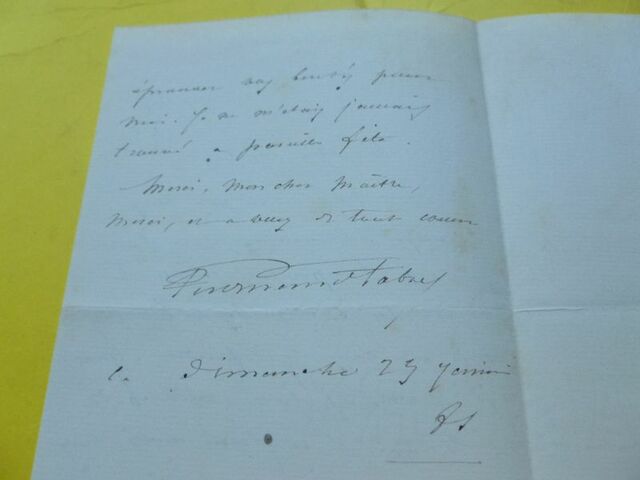 éprouver vos bontés pour
moi. Je ne m'étais jamais
trouvé à pareille fête.
Merci, mon cher Maître,
merci, et à vous de tout coeur
Dimanche 25 janvier